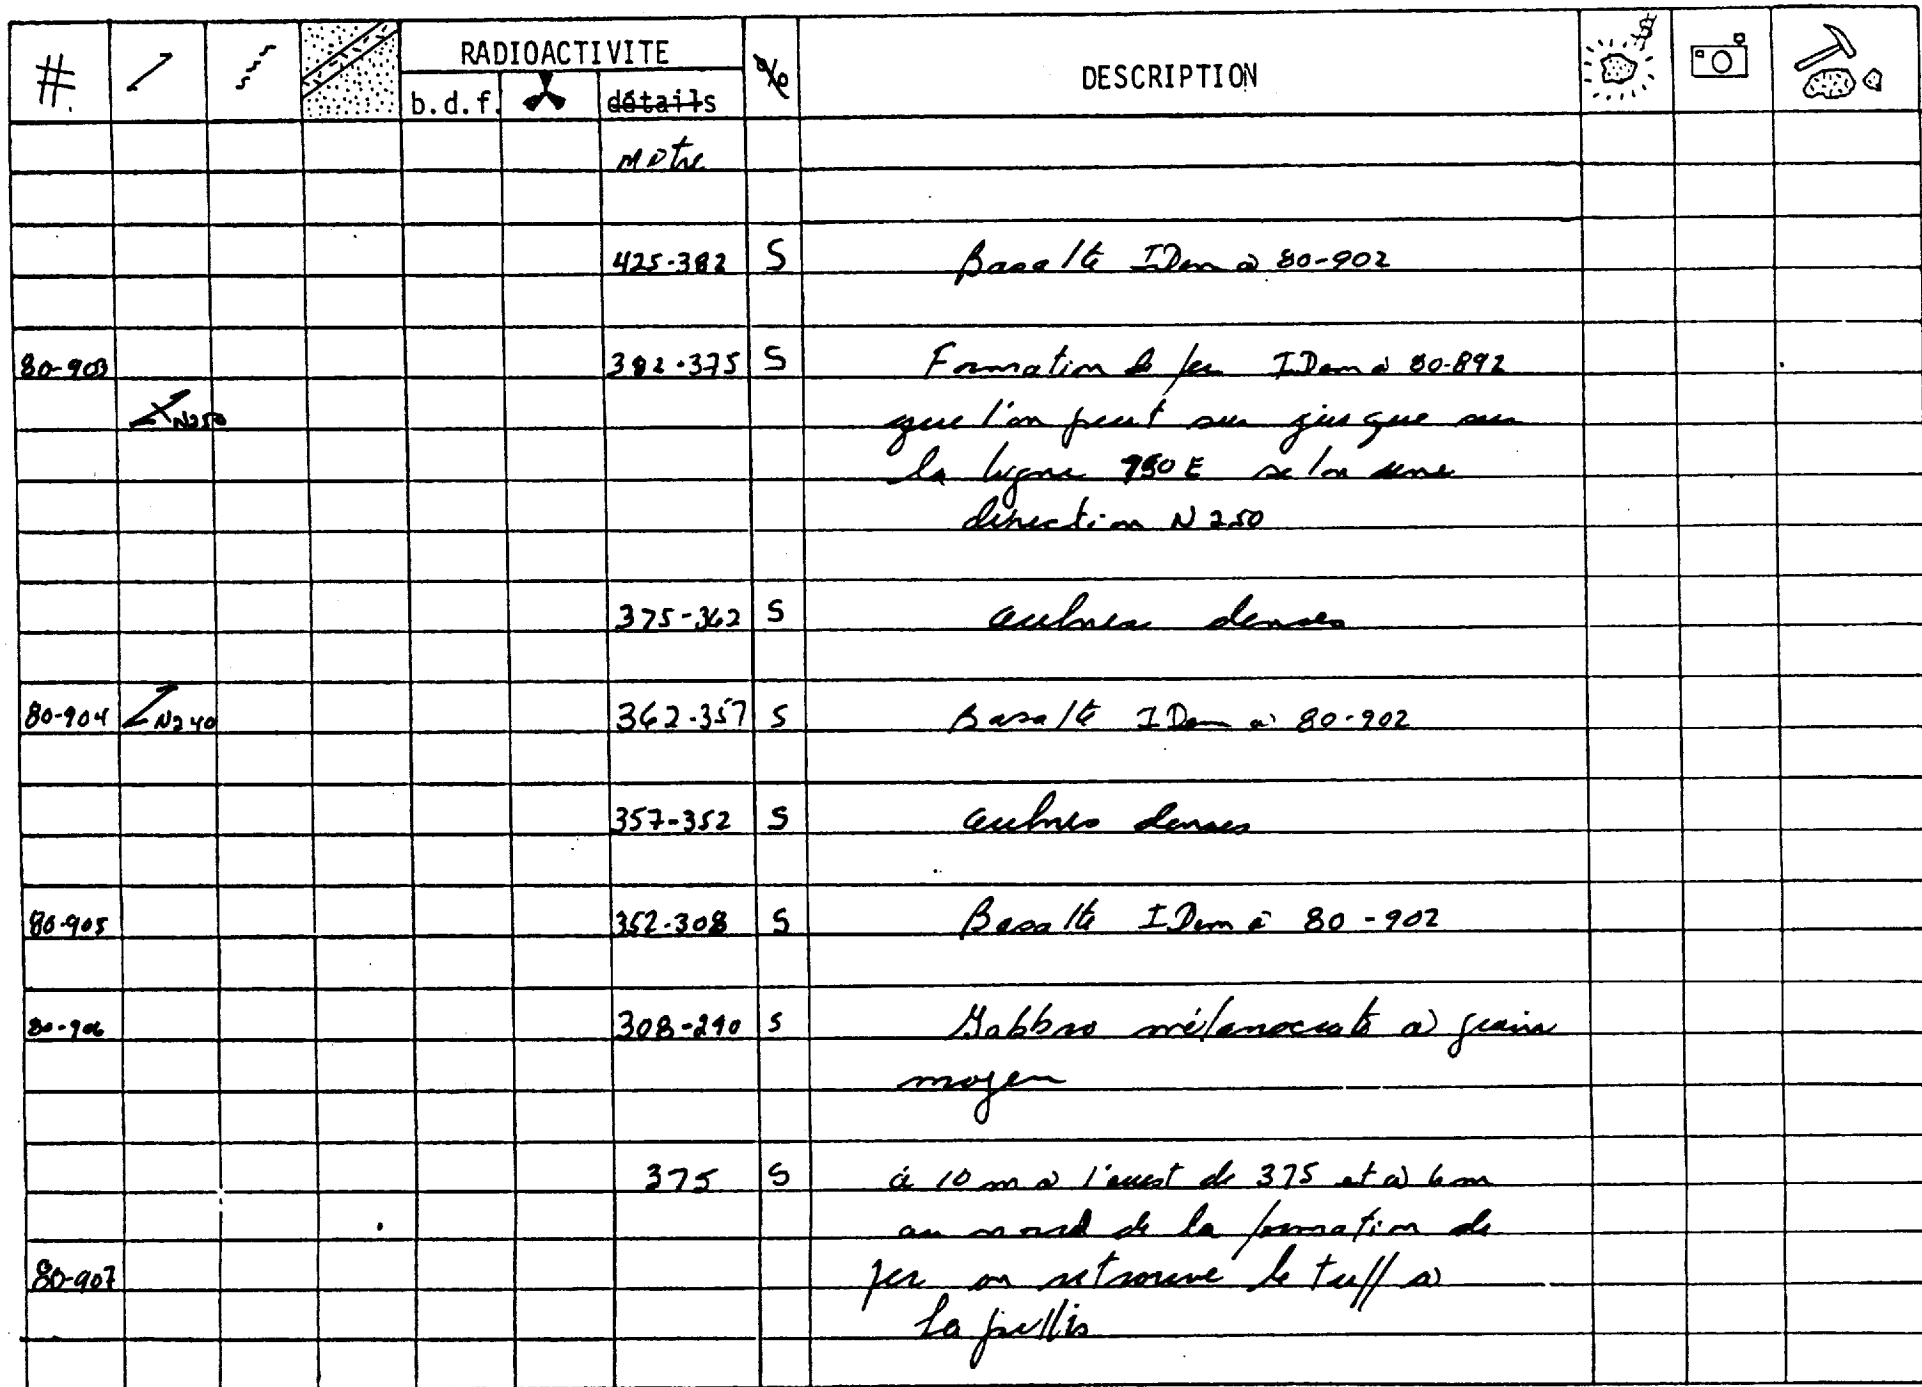 # RADIOACTIVITE % DESCRIPTION
b.d.f. détails
mètre
425-382 S Basalte IDem à 80-902
80-903 382-375 S Formation de fer IDem à 80-892
N250 que l'on peut jusque sur
la ligne 950 E selon une
direction N250
375-362 S aulnes denses
80-904 N240 362-357 S Basalte IDem à 80-902
357-352 S aulnes denses
80-905 352-308 S Basalte IDem à 80-902
80-906 308-290 S Gabbro mélanocrate à grain
moyen
375 S à 10 m à l'ouest de 375 et à 6m
au nord de la formation de
80-907 fer on retrouve le tuff à
lapillis